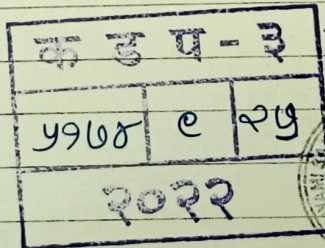 क ड प - ३
५१७४ | ९ | २५
२०२२